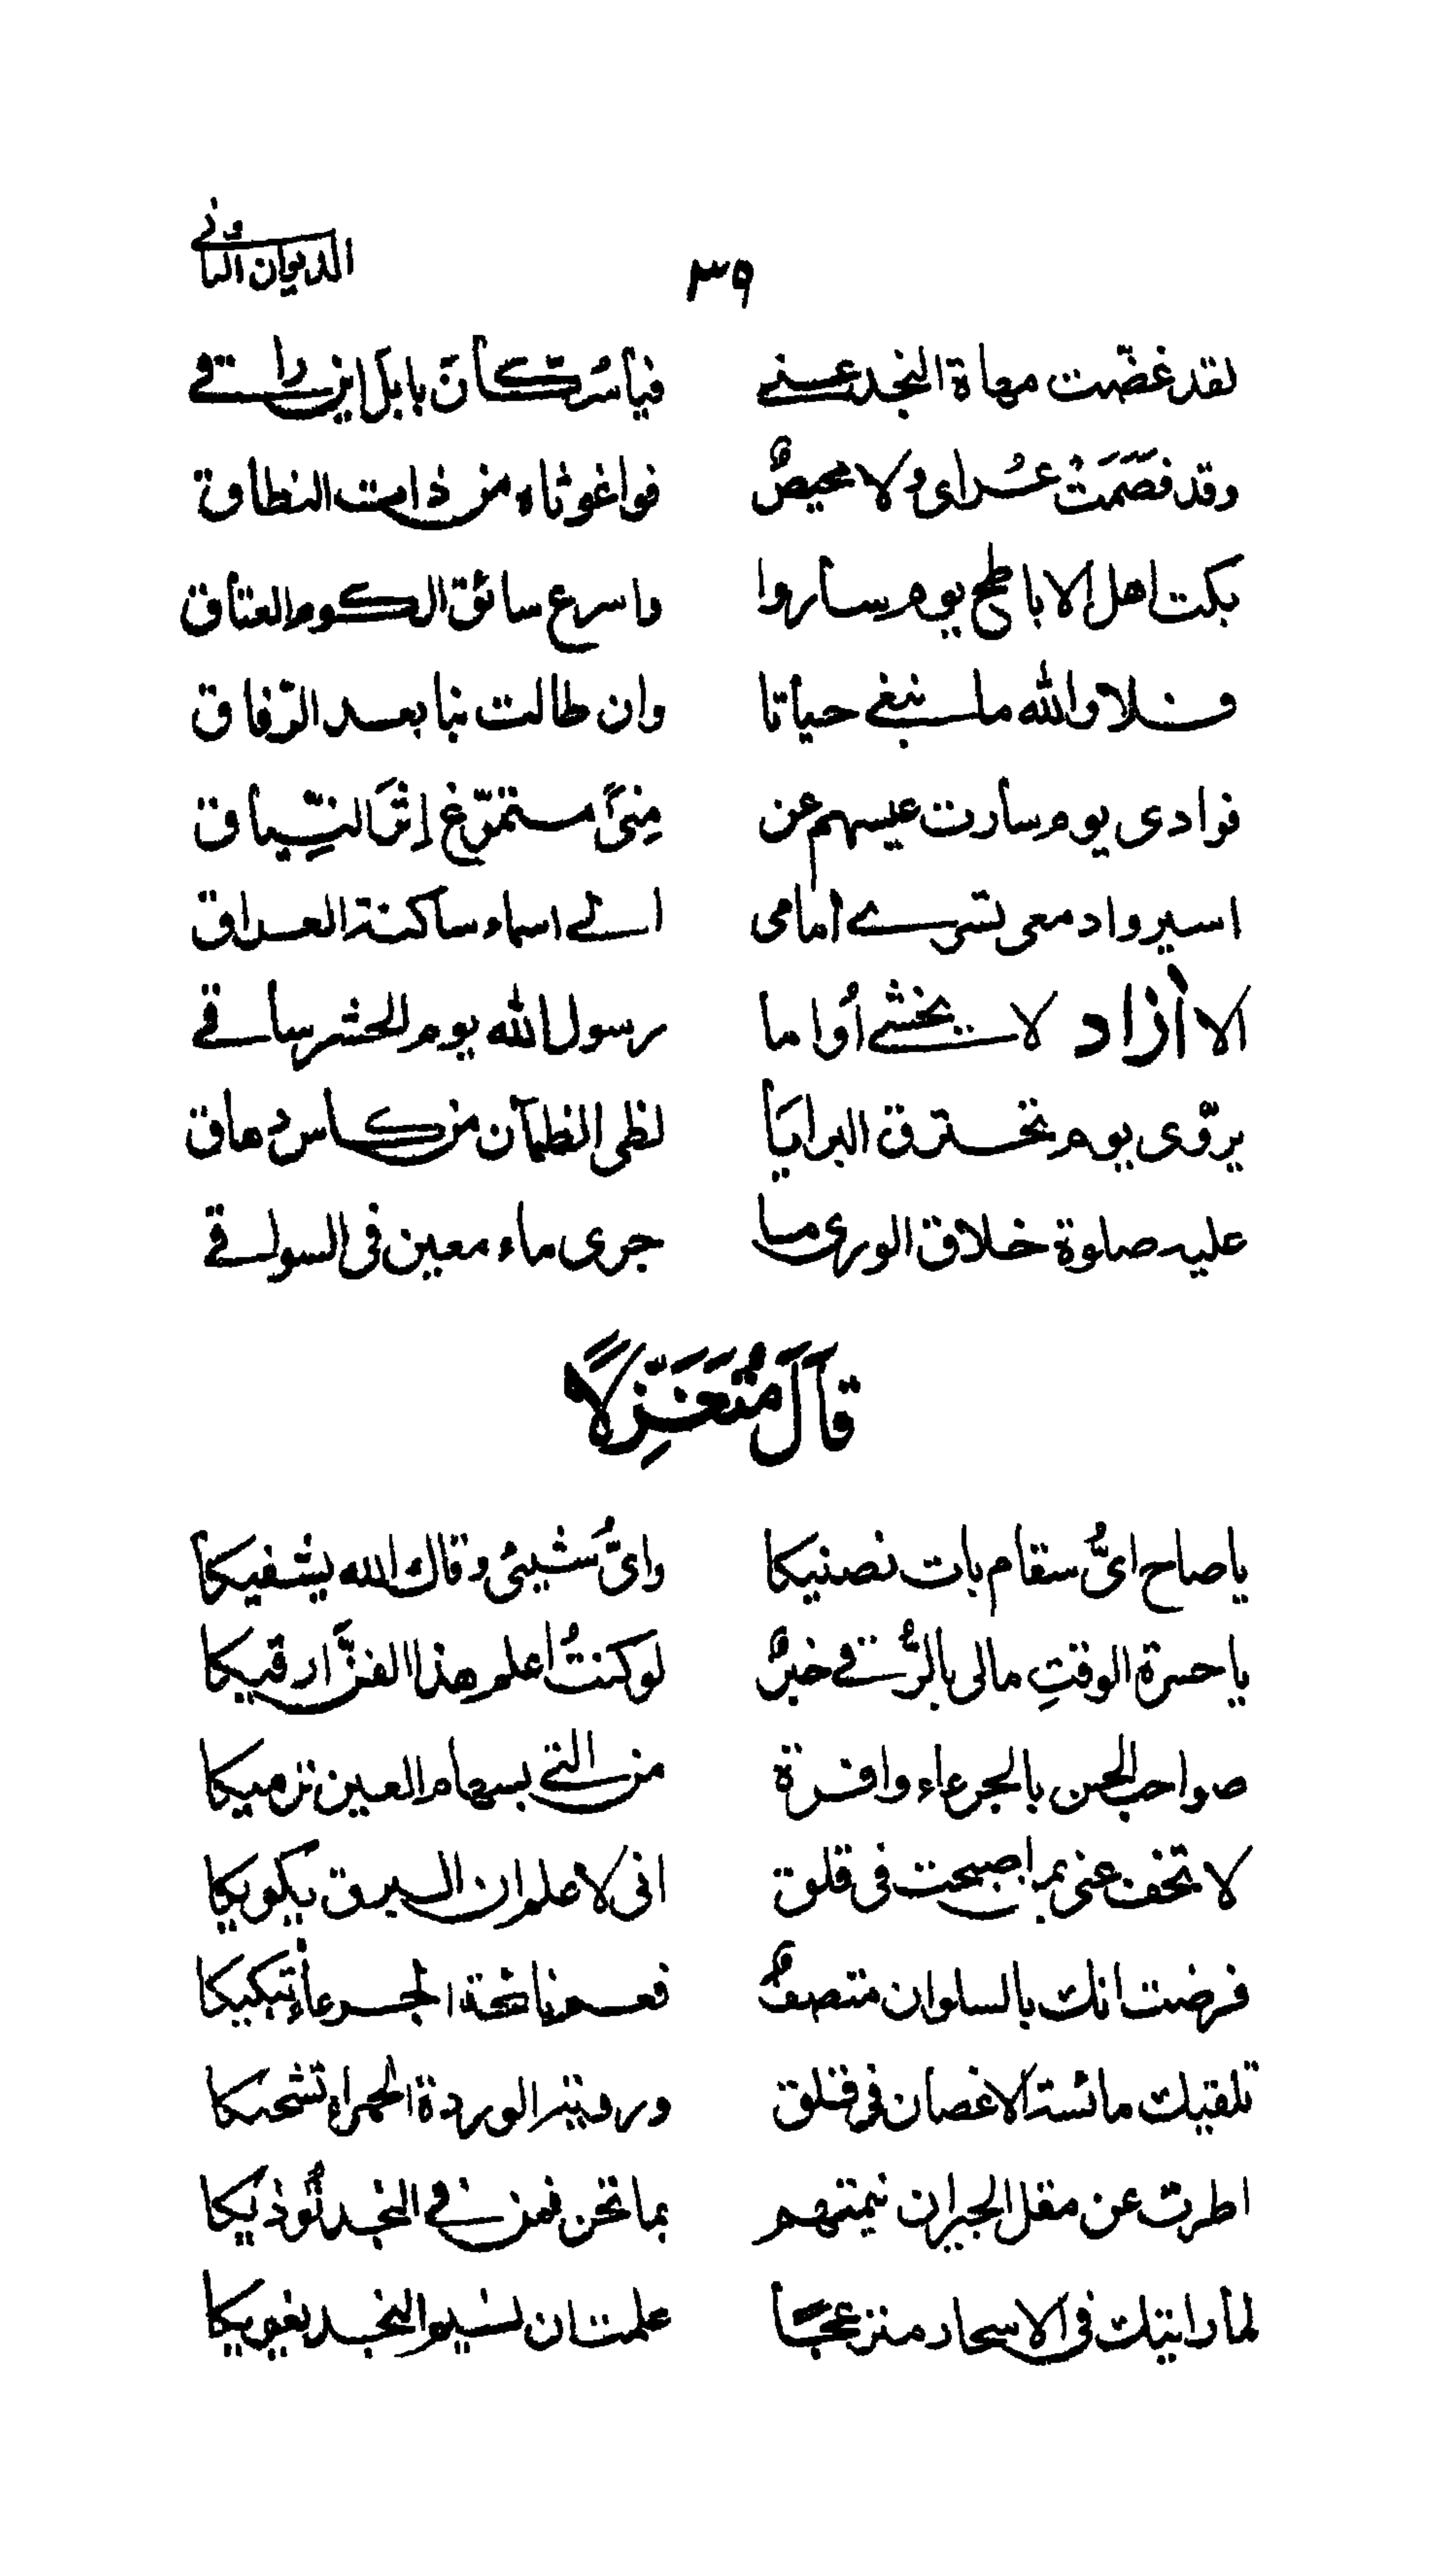 الديوان الثاني
٣٩
لقد غضّت مهاة النجد عنے فيا سُكّان بابل اين راقے
وقد فصَمَتْ عُراى ولا محيصٌ فواغوثاه من ذات النطاق
بكت اهل الاباطح يوم ساروا واسرع سائق الكوم العتاق
فلا والله ما نبغے حياتا وان طالت بنا بعد الرّفاق
فوادى يوم سارت عيسهم عن مِنىً متمرّغ إثرَ النِّياق
اسير وادمعى تسرے امامى الے اسماء ساكنة العراق
الا آزاد لا يخشے أُواما رسول الله يوم الحشر ساقے
يروّى يوم تحترق البرايَا لظى الظمآن من كاس دهاق
عليه صلوة خلاق الورى ما جرى ماء معين فى السواقے
قَالَ مُتَغَزِّلًا
يا صاح اىُّ سقام بات نصنيكا واىُّ شيئى وقاك الله يشفيكا
يا حسرة الوقتِ مالى بالرُّقے خبرٌ لو كنتُ اعلم هذا الفنَّ ارقيكا
صواحب الحسن بالجرعاء وافرة من التے بسهام العين ترميكا
لا تخف عنى بم اصبحت فى قلق انى لاعلم ان البرق يكويكا
فرضت انك بالسلوان متصفٌ فعم نائحة الجرعاء تبكيكا
تلقيك مائسة الاغصان فى قلق وروية الوردة الحمراء تشحيكا
اطرت عن مقل الجيران نيمتهم بما تحن فمن فے النجد نُوذيكا
لما رايتك فى الاسحار منزعجًا علمت ان نسيم النجد يغويكا